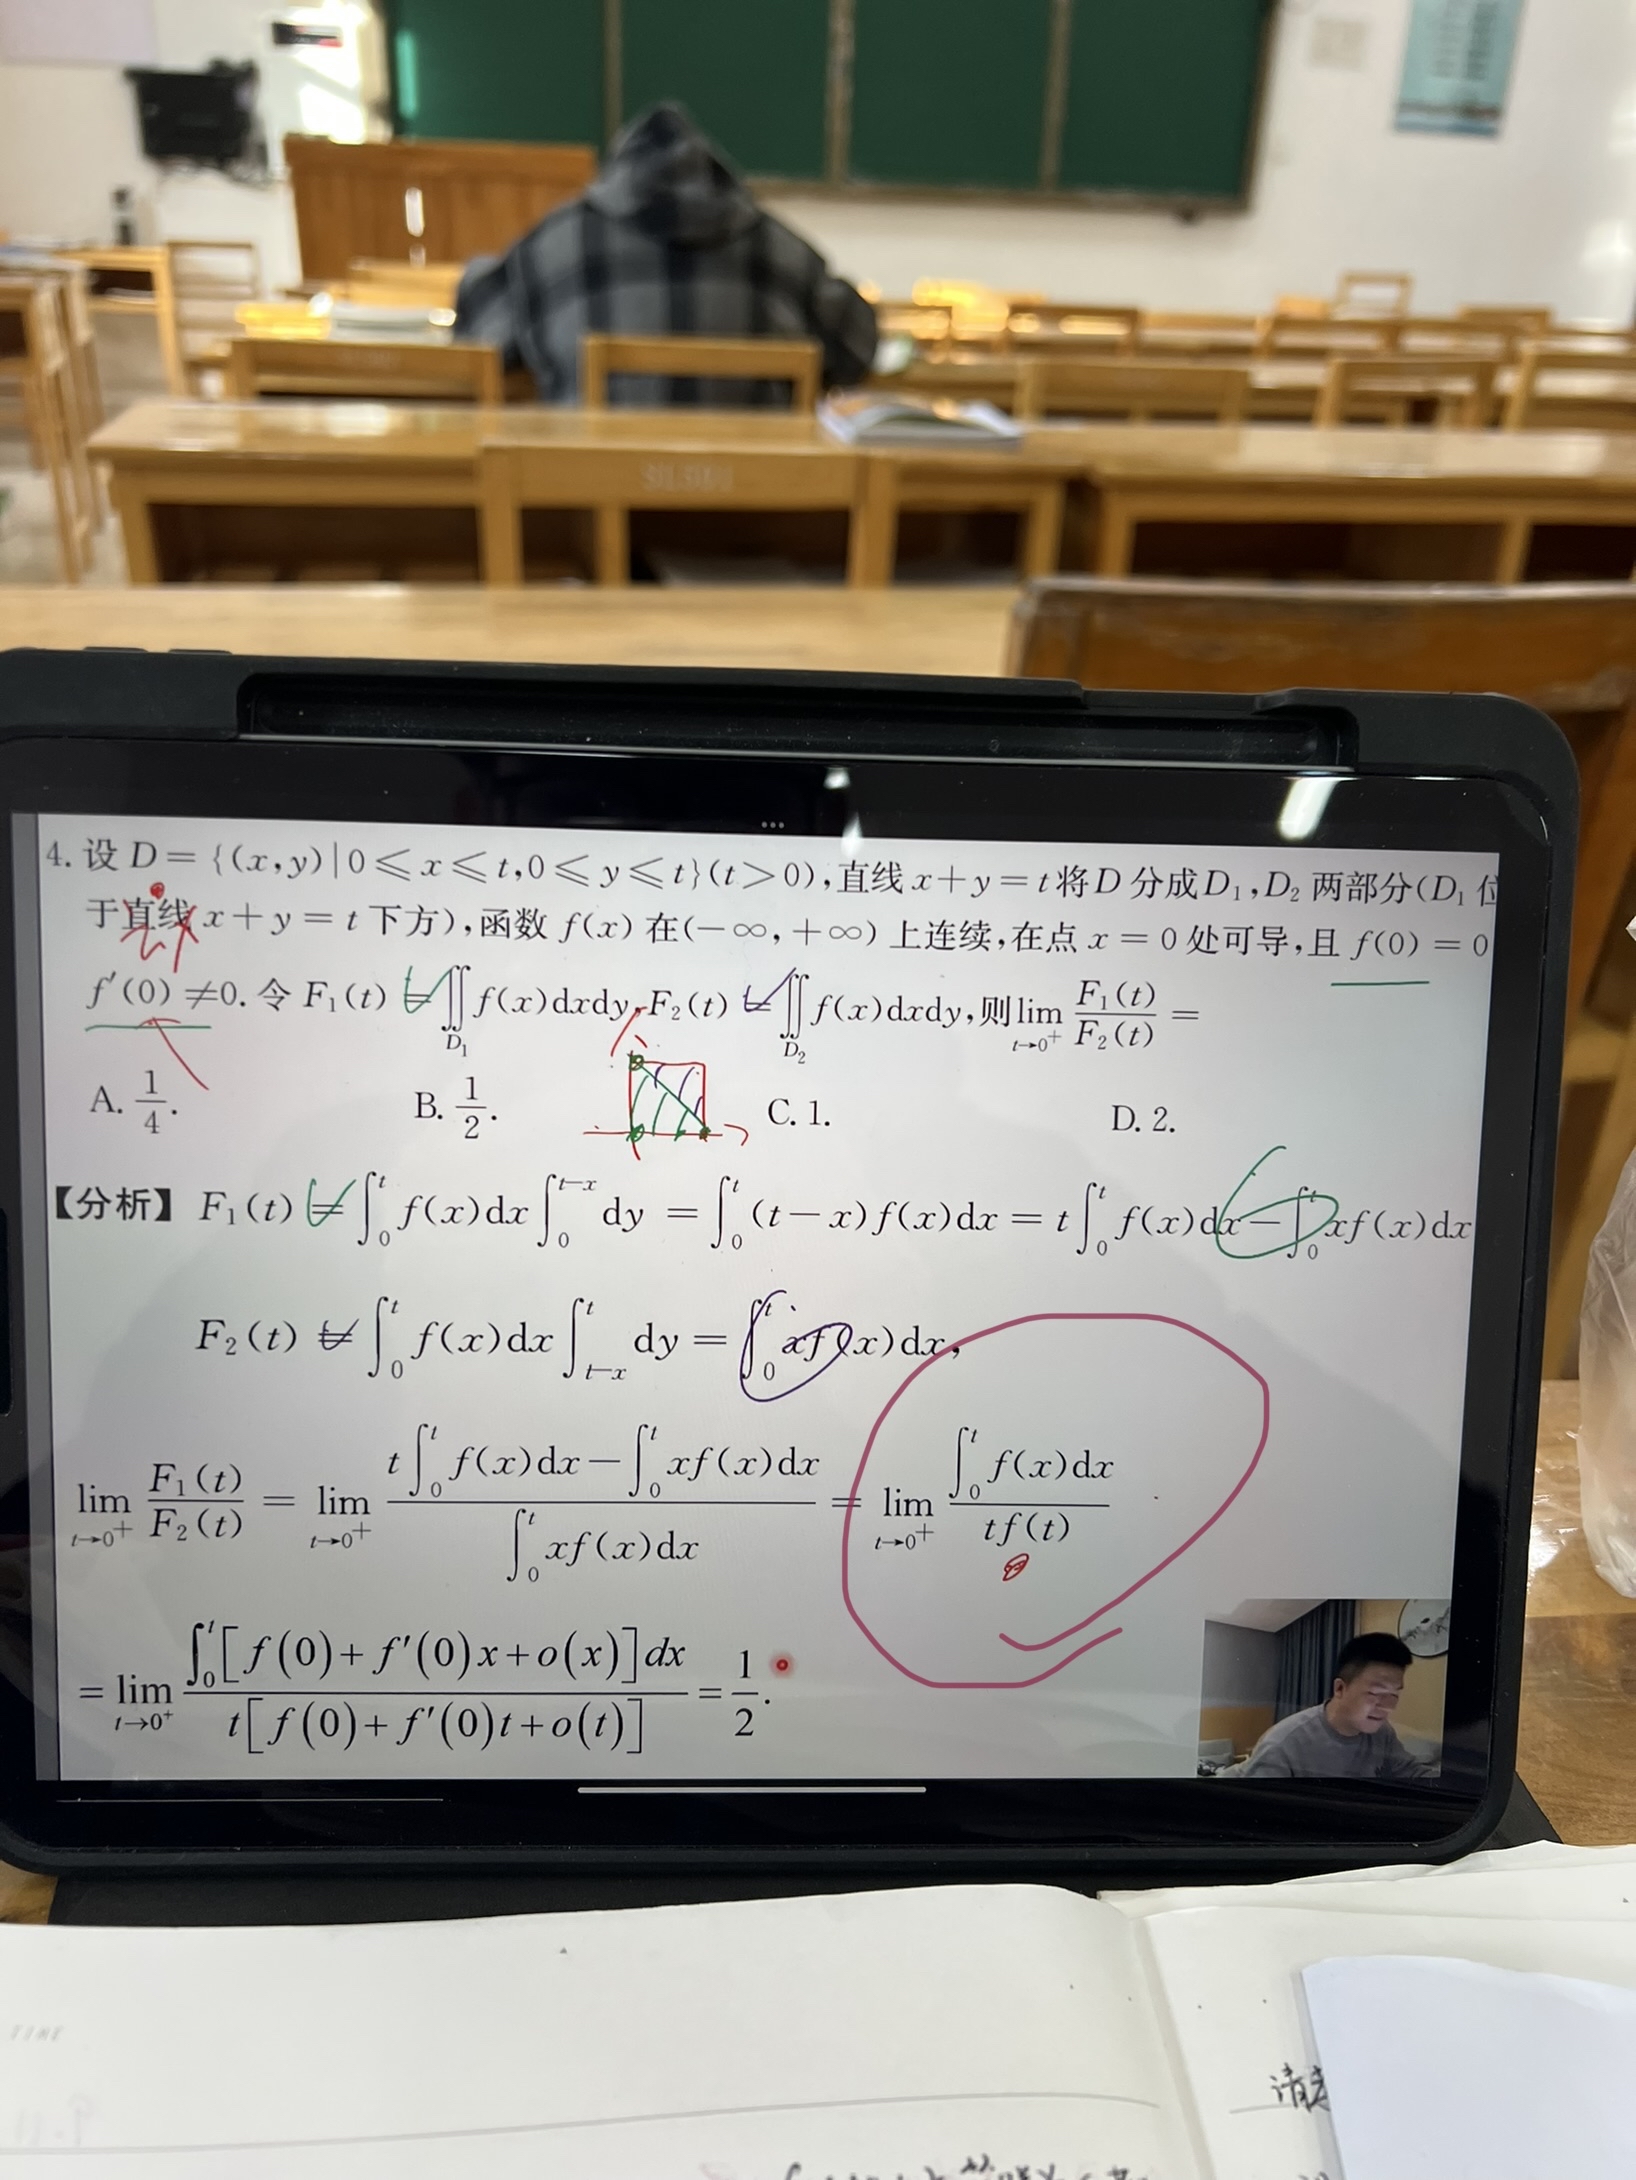 4. 设 D = {(x,y)|0⩽x⩽t,0⩽y⩽t}(t>0),直线 x+y=t将D 分成D₁,D₂ 两部分(D₁ 位
于直线 x+y=t 下方),函数 f(x) 在(-∞,+∞) 上连续,在点 x=0 处可导,且 f(0)=0
f′(0)≠0. 令 F₁(t) = ∬_{D₁} f(x)dxdy, F₂(t) = ∬_{D₂} f(x)dxdy,则 lim_{t→0⁺} F₁(t)/F₂(t) =
A. 1/4. B. 1/2. C. 1. D. 2.
【分析】 F₁(t) = ∫₀ᵗ f(x)dx ∫₀^{t-x} dy = ∫₀ᵗ (t-x)f(x)dx = t∫₀ᵗ f(x)dx - ∫₀ᵗ xf(x)dx
F₂(t) = ∫₀ᵗ f(x)dx ∫_{t-x}^{t} dy = ∫₀ᵗ xf(x)dx,
lim_{t→0⁺} F₁(t)/F₂(t) = lim_{t→0⁺} (t∫₀ᵗ f(x)dx - ∫₀ᵗ xf(x)dx)/(∫₀ᵗ xf(x)dx) = lim_{t→0⁺} (∫₀ᵗ f(x)dx)/(tf(t))
= lim_{t→0⁺} (∫₀ᵗ[f(0)+f′(0)x+o(x)]dx)/(t[f(0)+f′(0)t+o(t)]) = 1/2.
TIME
请